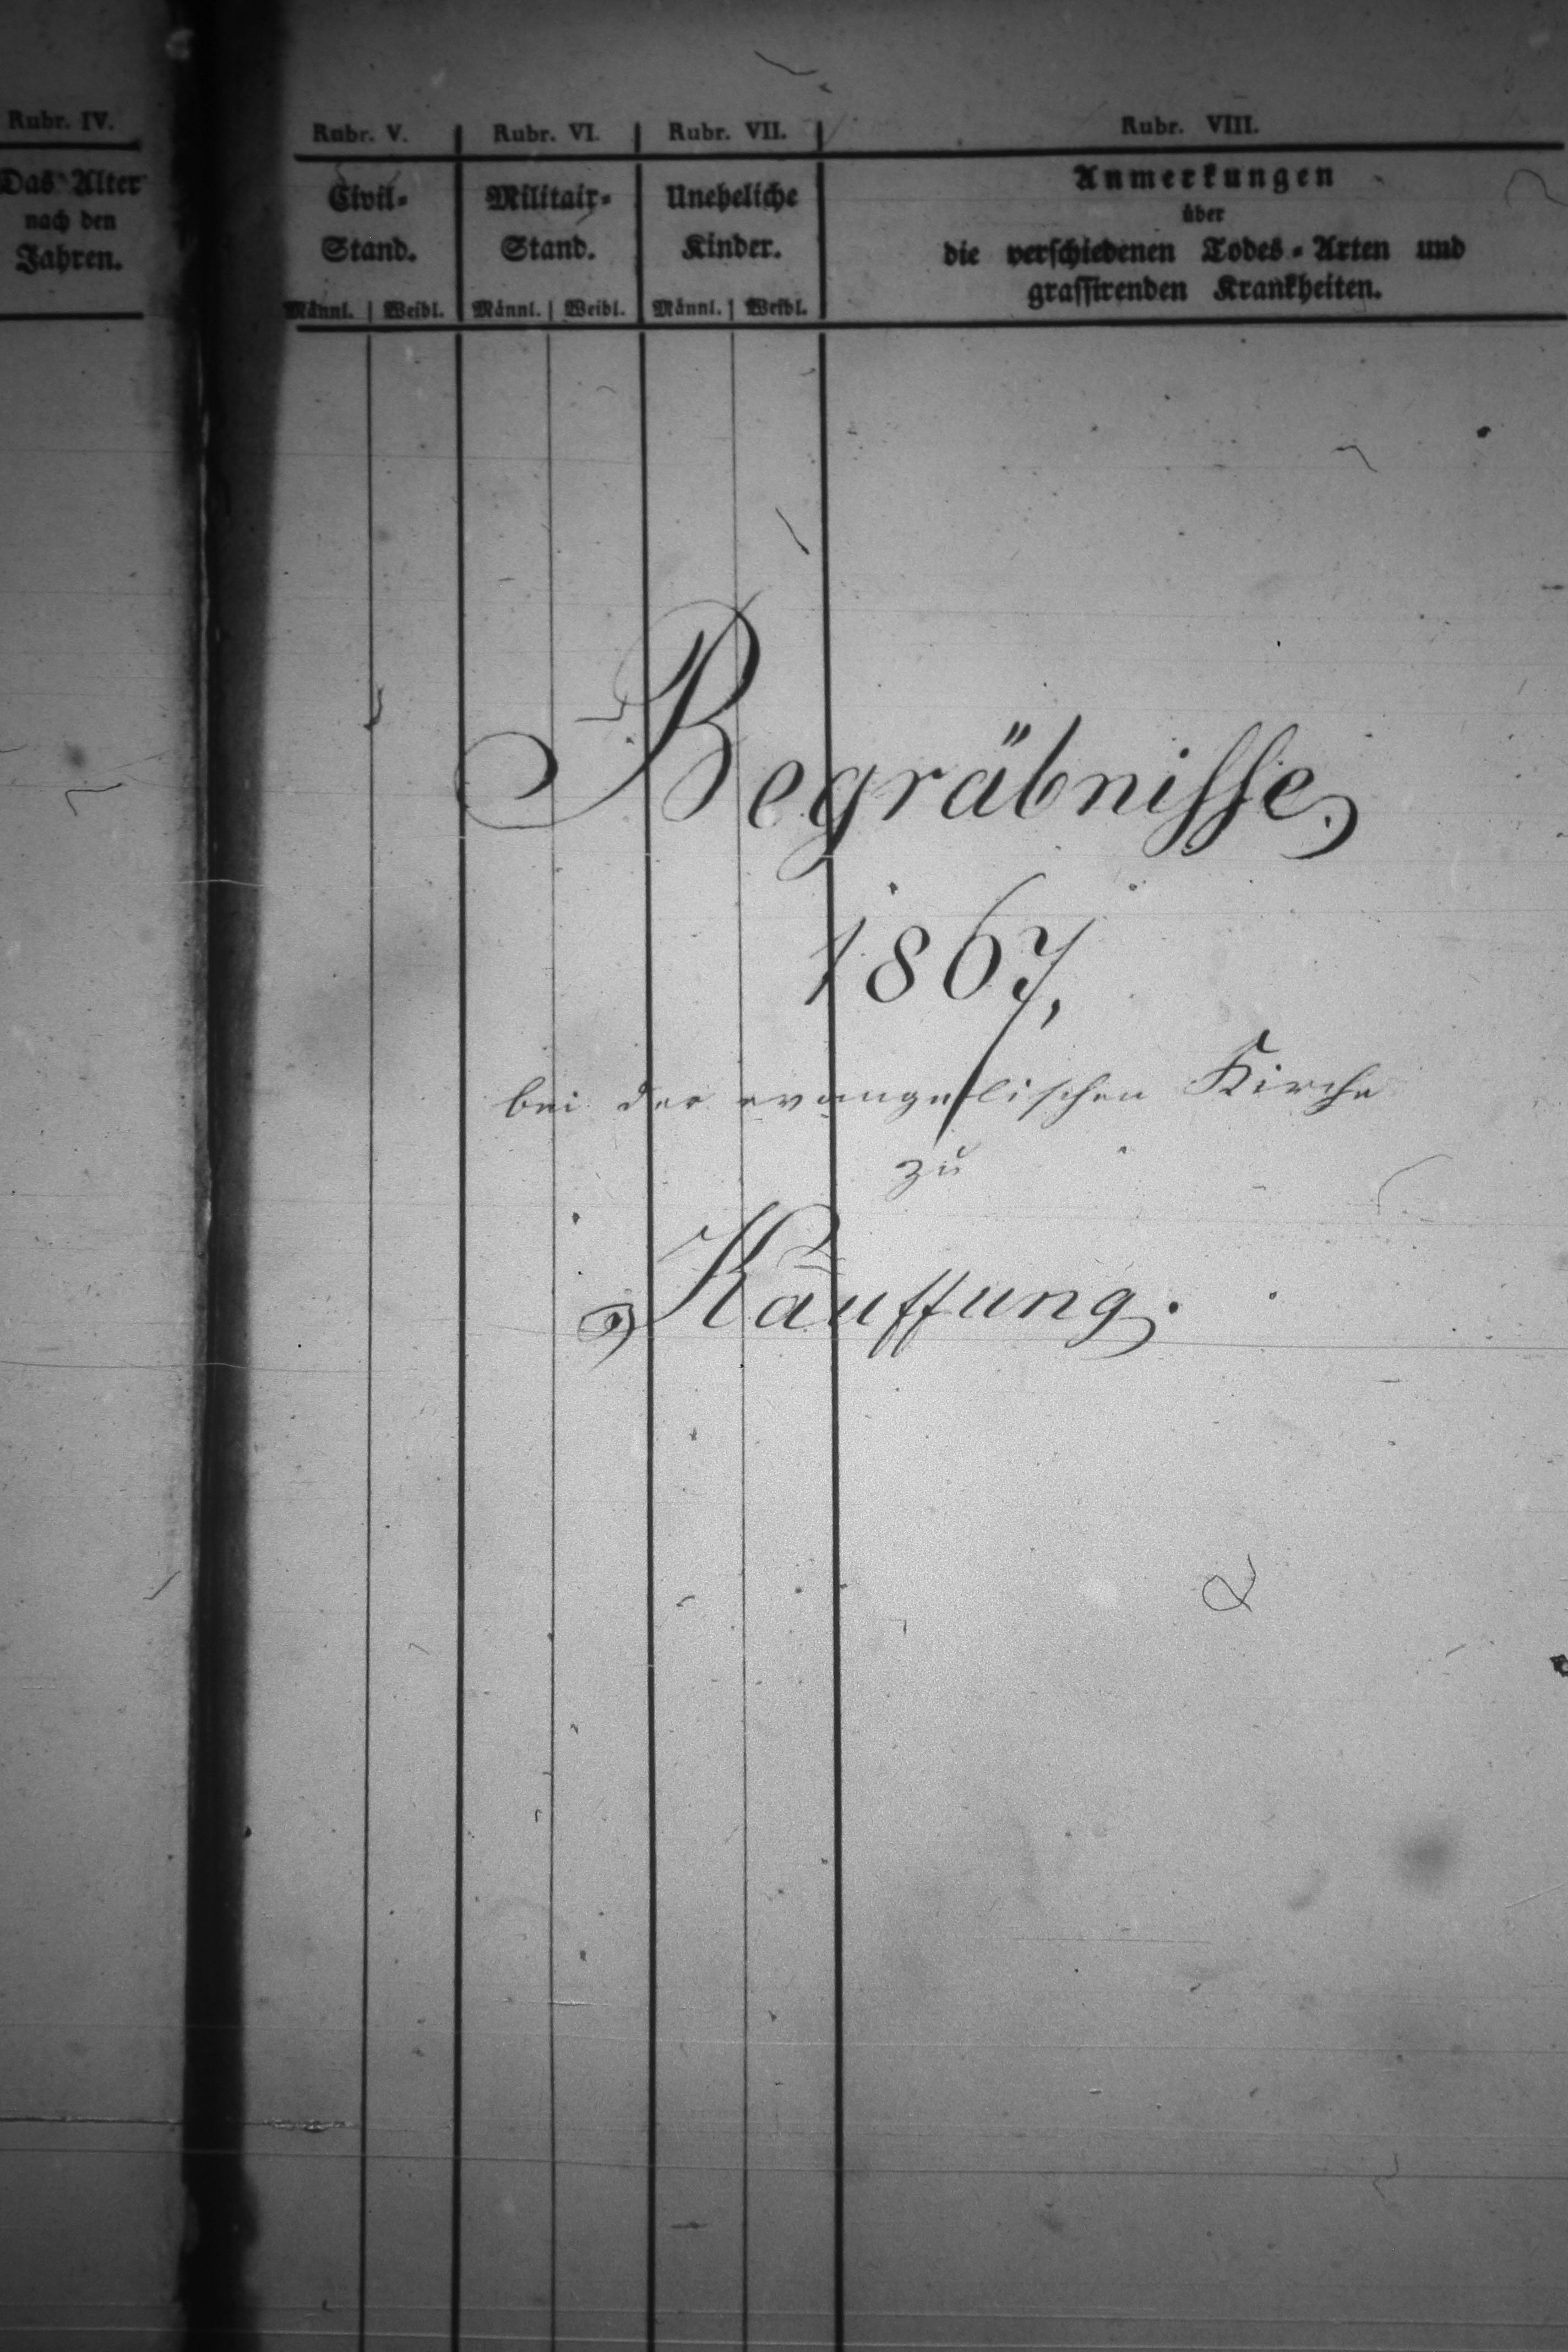 Rubr. IV.
Das Alter
nach den
Jahren.
Rubr. V.
Civil-
Stand.
Männl. Weibl.
Rubr. VI.
Militair-
Stand.
Männl. Weibl.
Rubr. VII.
Uneheliche
Kinder.
Männl. Weibl.
Rubr. VIII.
Anmerkungen
über
die verschiedenen Todes-Arten und
grassirenden Krankheiten.
Begräbnisse
1867,
bei der evangelischen Kirche
zu
Kauffung.